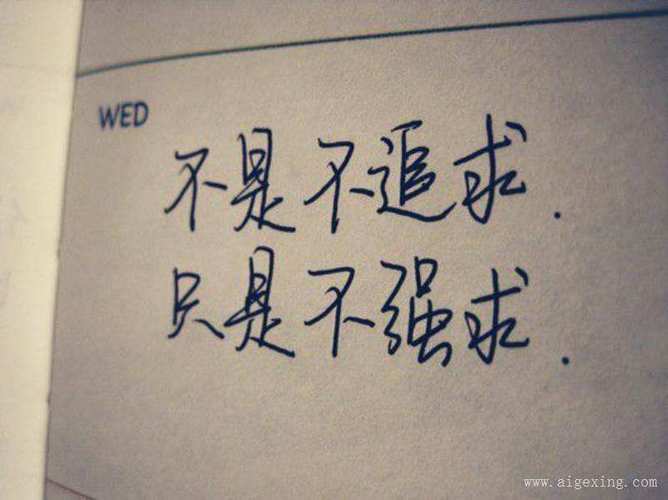 WED
不是不追求.
只是不强求.
www.aigexing.com